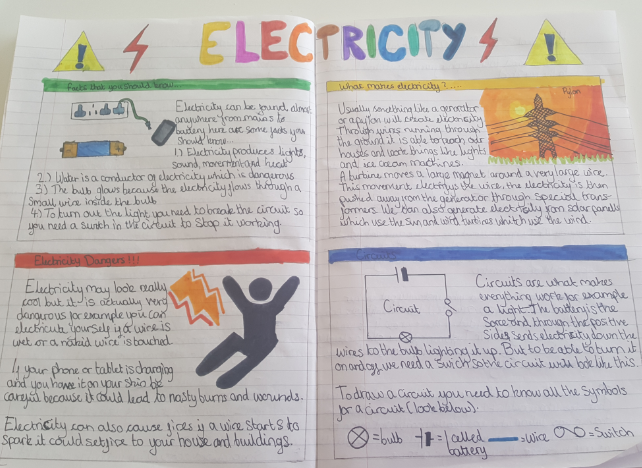 ELECTRICITY
Facts that you should know...
Electricity can be found almost
anywhere from mains to
battery here are some facts you
should know...
1.) Electricity produces lights,
sound, movement and heat
2.) Water is a conductor of electricity which is dangerous
3.) The bulb glows because the electricity flows through a
small wire inside the bulb
4.) To turn out the light you need to break the circuit so
you need a switch in the circuit to stop it working.
Electricity Dangers!!!
Electricity may look really
cool but it is actually very
dangerous for example you can
electricute yourself if a wire is
wet or a naked wire is touched.
If your phone or tablet is charging
and you have it on your skin be
careful because it could lead to nasty burns and wounds.
Electricity can also cause fires if a wire starts to
spark it could set fire to your house and buildings.
What makes electricity?....
Usually something like a generator
or a pylon will create electricity
Through wires running through
the ground it is able to reach our
houses and work things like lights
and ice cream machines.
Pylon
A turbine moves a large magnet around a very large wire.
This movement electrifys the wire, the electricity is then
pushed away from the generator through special trans-
formers. We can also generate electricity from solar panels
which use the sun and wind turbines which use the wind.
Circuits
Circuit
Circuits are what makes
everything work for example
a light. The battery is the
Sorce and through the positive
Side, sends electricity down the
wires to the bulb lighting it up. But to be able to turn it
on and off we need a switch so the circuit will look like this.
To draw a circuit you need to know all the symbols
for a circuit (look below):
=bulb =1 called battery =wire =Switch